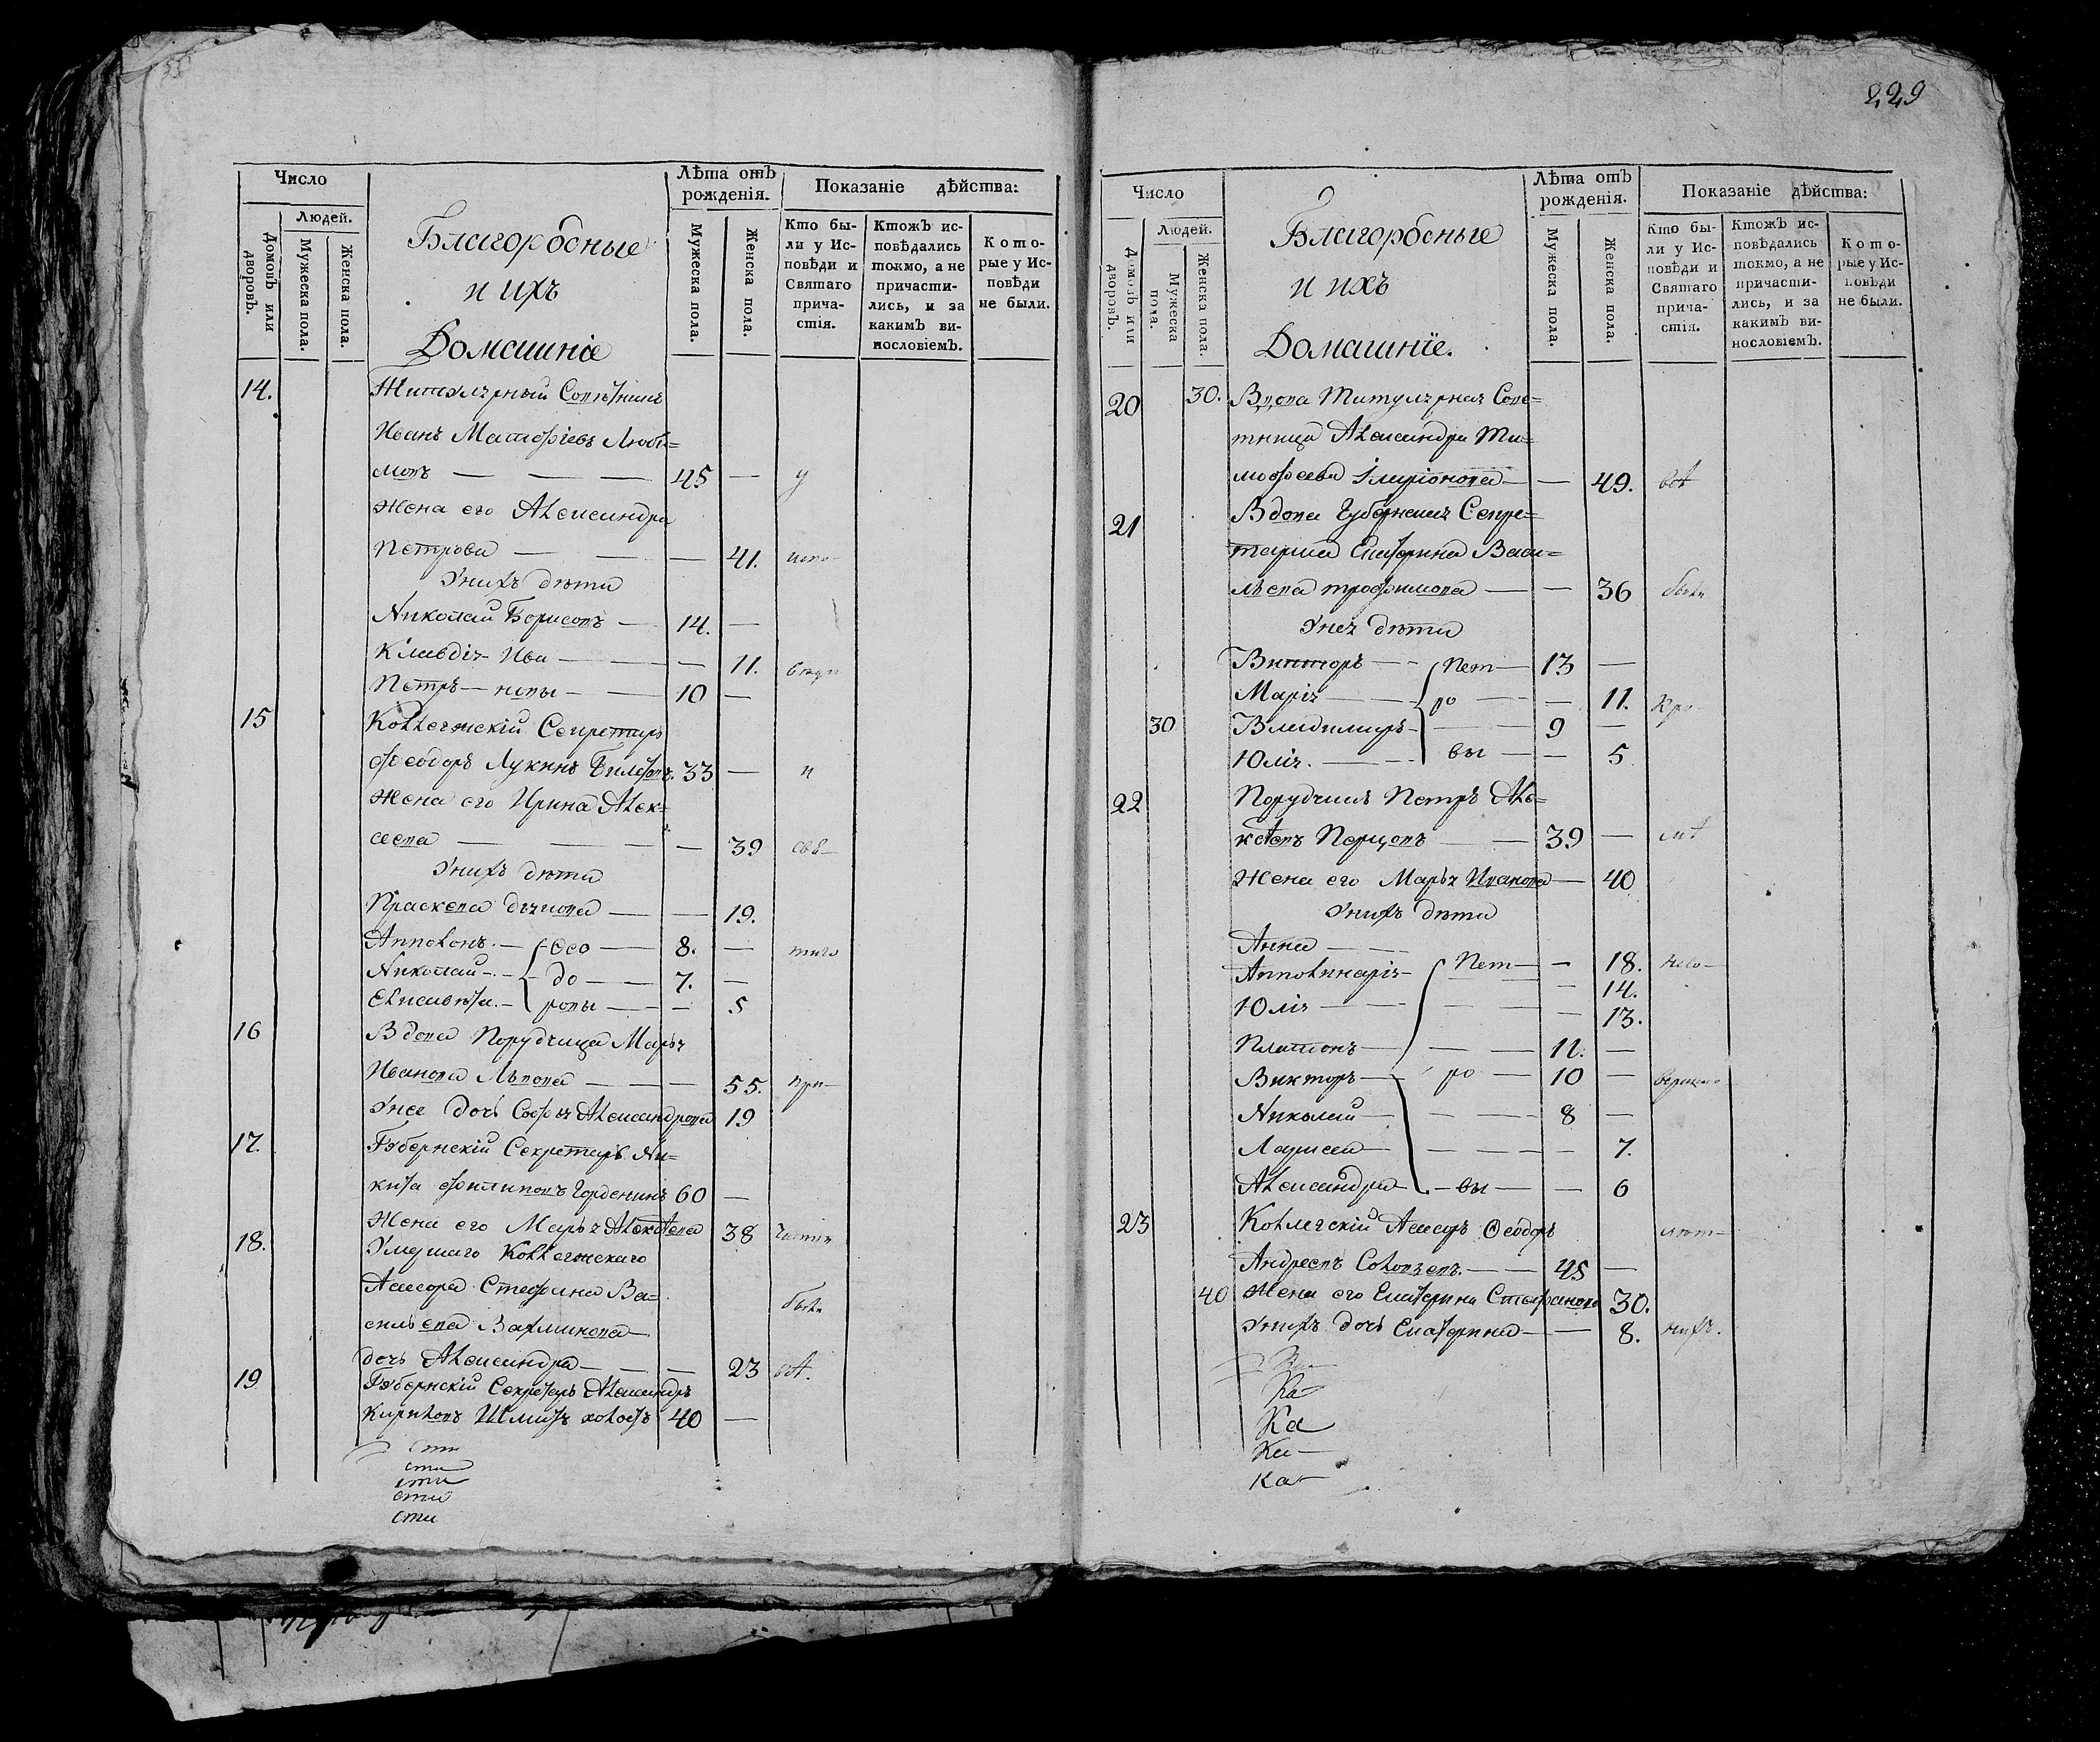 Число
Людей.
Домовъ или дворовъ.
Мужеска пола.
Женска пола.
Благородные
и ихъ
Домашніе
Лѣта отъ рожденія.
Мужеска пола.
Женска пола.
Показаніе дѣйства:
Кто были у Исповѣди и Святаго причастія.
Ктожъ исповѣдались токмо, а не причастились, и за какимъ винословіемъ.
Которые у Исповѣди не были.
14. Титулярный Совѣтникъ
Иванъ Матфѣевъ Люби=
мовъ — — — 45 — у
Жена его Александра
Петрова — — — 41. испо
У нихъ дѣти
Николай Борисовъ — 14. —
Клавдія Ива — — 11.
Петръ — новы — — 10 —
15 Коллежскій Секретарь
Феодоръ Лукинъ 33 — и
Жена его Ирина Алек=
сеева — — — 39 свя—
У нихъ дѣти
Праскева — — 19.
Апполонъ — Фео — 8. — таго
Николай — до — 7. —
Елисавета — ровы — — 5
16 Вдова Поручица Марья
Иванова Львова — — 55. при—
У нее дочь Софья Александрова 19
17. Губернскій Секретарь Ни=
кита Филиповъ Горденинъ 60 —
Жена его Марья Алексеева 38
18. Умершаго Коллежскаго
Асесора Стефана Ва= были
сильева
дочь Александра — — — 23 всѣ.
19 Губернскій Секретарь Александръ
Кириловъ Шмитъ холостъ 40 —
сти
сти
сти
сти
сти
229
Число
Людей.
Домовъ или дворовъ.
Мужеска пола.
Женска пола.
Благородные
и ихъ
Домашніе.
Лѣта отъ рожденія.
Мужеска пола.
Женска пола.
Показаніе дѣйства:
Кто были у Исповѣди и Святаго причастія.
Ктожъ исповѣдались токмо, а не причастились, и за какимъ винословіемъ.
Которые у Исповѣди не были.
20 30. Вдова Титулярная Сове=
тница Александра Ти=
мофеева Иларіонова — — 49. всѣ
21 Вдова Губернская Секре=
тарша Екатерина Васи=
льева Трофимова — — 36 были
У нея дѣти
Викторъ — Пет — 13 —
Марія — ро — — 11.
30 Владимиръ — — 9 —
Юлія. — вы — — 5
22 Поручикъ Петръ Але=
ксѣевъ Перцовъ — — 39 —
Жена его Марья Иванова — 40
У нихъ дѣти
Анна — — Пет — — 18.
Апполинарія — — — 14.
Юлія — — — 13.
Платонъ — — — 11. —
Викторъ — ро — 10 —
Николай — — — 8 —
Лариса — — — — 7.
Александра — вы — — 6
23 Колегскій Асесоръ Феодоръ
Андреевъ — — 45 —
40 Жена его Екатерина Стефанова 30.
У нихъ дочь Екатерина — — 8. нихъ.
Ка—
Ка
Ка—
Ка—